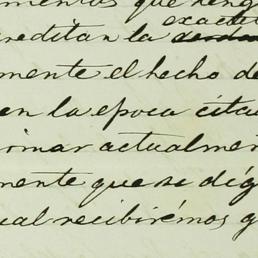 mentos que teng
exacti
creditan la
mente el hecho de
en la epoca cita
rimar actualmen
mente que se dig
ual recibirémos g